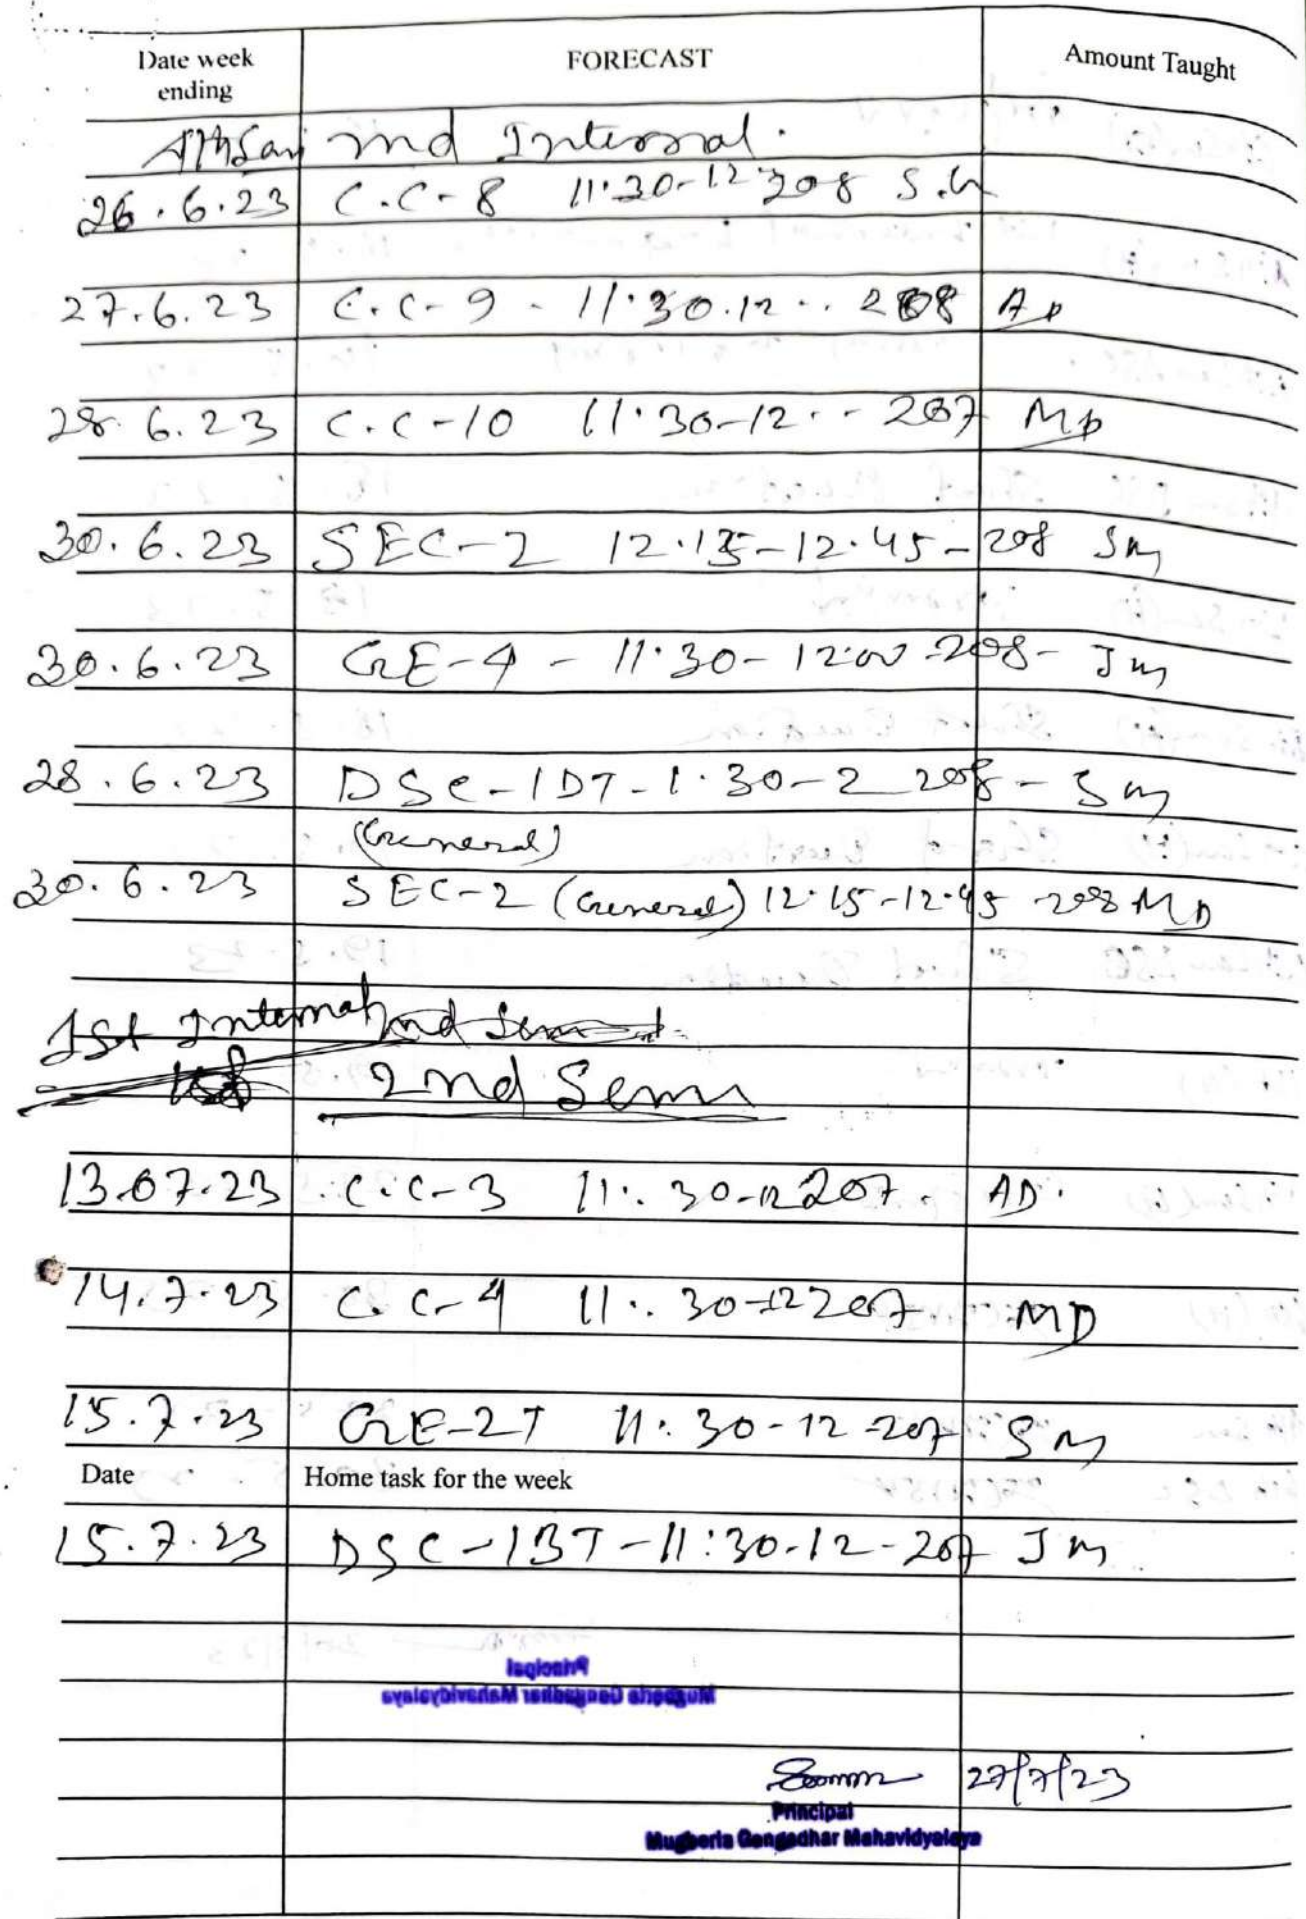 Date week ending FORECAST Amount Taught
4th Sem IInd Internal.
26.6.23 C.C-8 11:30-12 208 S.M
27.6.23 C.C-9 - 11:30.12 .. 208 AD
28.6.23 C.C-10 11:30-12 .. 207 MD
30.6.23 SEC-2 12.15-12.45-208 SM
30.6.23 GE-4 - 11:30-12:00-208- SM
28.6.23 DSC-1DT-1.30-2 208- SM
(General)
30.6.23 SEC-2 (General) 12.15-12.45 208 MD
1st Internal 2nd Sem
2nd Sem
13.07.23 C.C-3 11:30-12 207. AD.
14.7.23 C.C-4 11:30-12 207 MD
15.7.23 GE-2T 11:30-12-207 SM
Date Home task for the week
15.7.23 DSC-1BT-11:30-12-207 SM
Principal
Mugberia Gangadhar Mahavidyalaya
27/7/23
Principal
Mugberia Gangadhar Mahavidyalaya